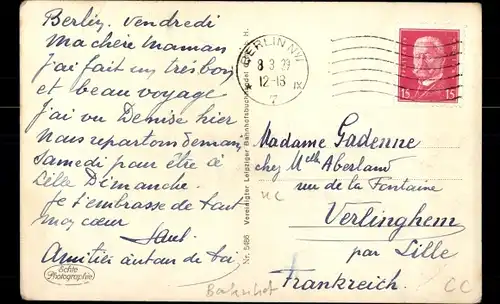 Berlin, vendredi
Ma chère Maman
J'ai fait un très bon
et beau voyage
J'ai vu Denise hier
Nous repartons demain
samedi pour être à
Lille Dimanche.
Je t'embrasse de tout
mon cœur
Amitiés autour de toi
Echte
Photographie
Nr. 5486 Vereinigter Leipziger Bahnhofsbuchhandel H.
BERLIN NW
8.3.29
12-13
IX
7
15 15
Madame Gadenne
chez Melle Aberland
rue de la Fontaine
Verlinghem
par Lille
Frankreich.
Bahnhof
CC